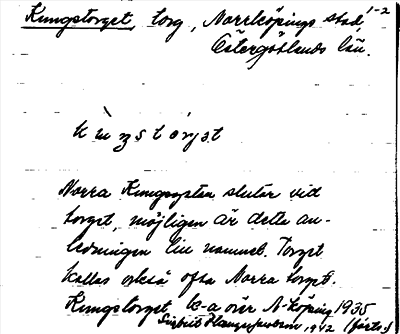 Kungstorget, torg, Norrköpings stad, 1-2
Östergötlands län.
Norra Kungsgatan slutar vid
torget, möjligen är detta an-
ledningen till namnet. Torget
kallas också ofta Norra torget.
Kungstorget, ka över N-köping 1935
1942 (forts.)